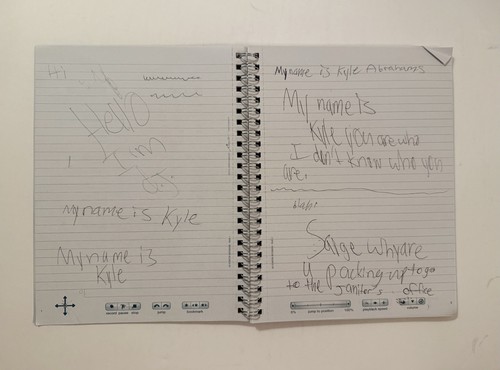 Hi
Hello
I'm
My name is Kyle
My name is
Kyle
record pause stop
jump
bookmark
My name is Kyle Abrahams
My name is
Kyle you are who
I don't know who you
are.
Sarge why are
u packing up to go
to the janitor's office
0%
jump to position
100%
playback speed
volume